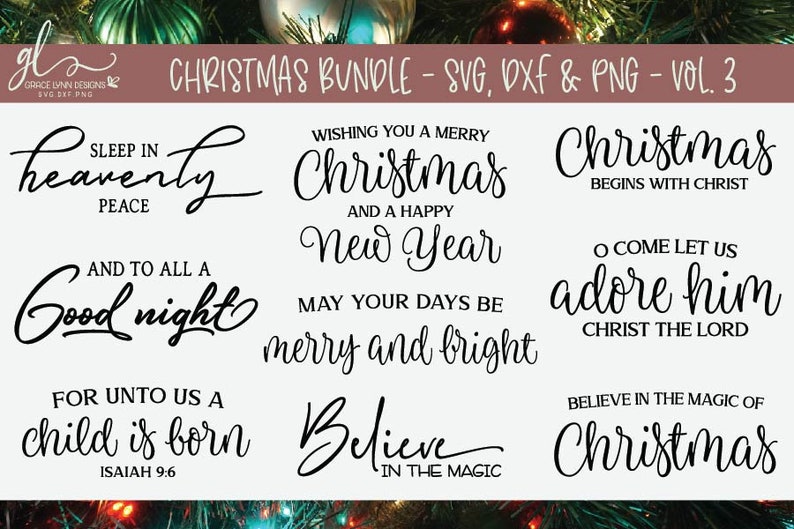 gl
GRACE LYNN DESIGNS
SVG.DXF.PNG
CHRISTMAS BUNDLE - SVG, DXF & PNG - VOL. 3
SLEEP IN
heavenly
PEACE
WISHING YOU A MERRY
Christmas
AND A HAPPY
New Year
Christmas
BEGINS WITH CHRIST
AND TO ALL A
Good night
MAY YOUR DAYS BE
merry and bright
O COME LET US
adore him
CHRIST THE LORD
FOR UNTO US A
child is born
ISAIAH 9:6
Believe
IN THE MAGIC
BELIEVE IN THE MAGIC OF
Christmas